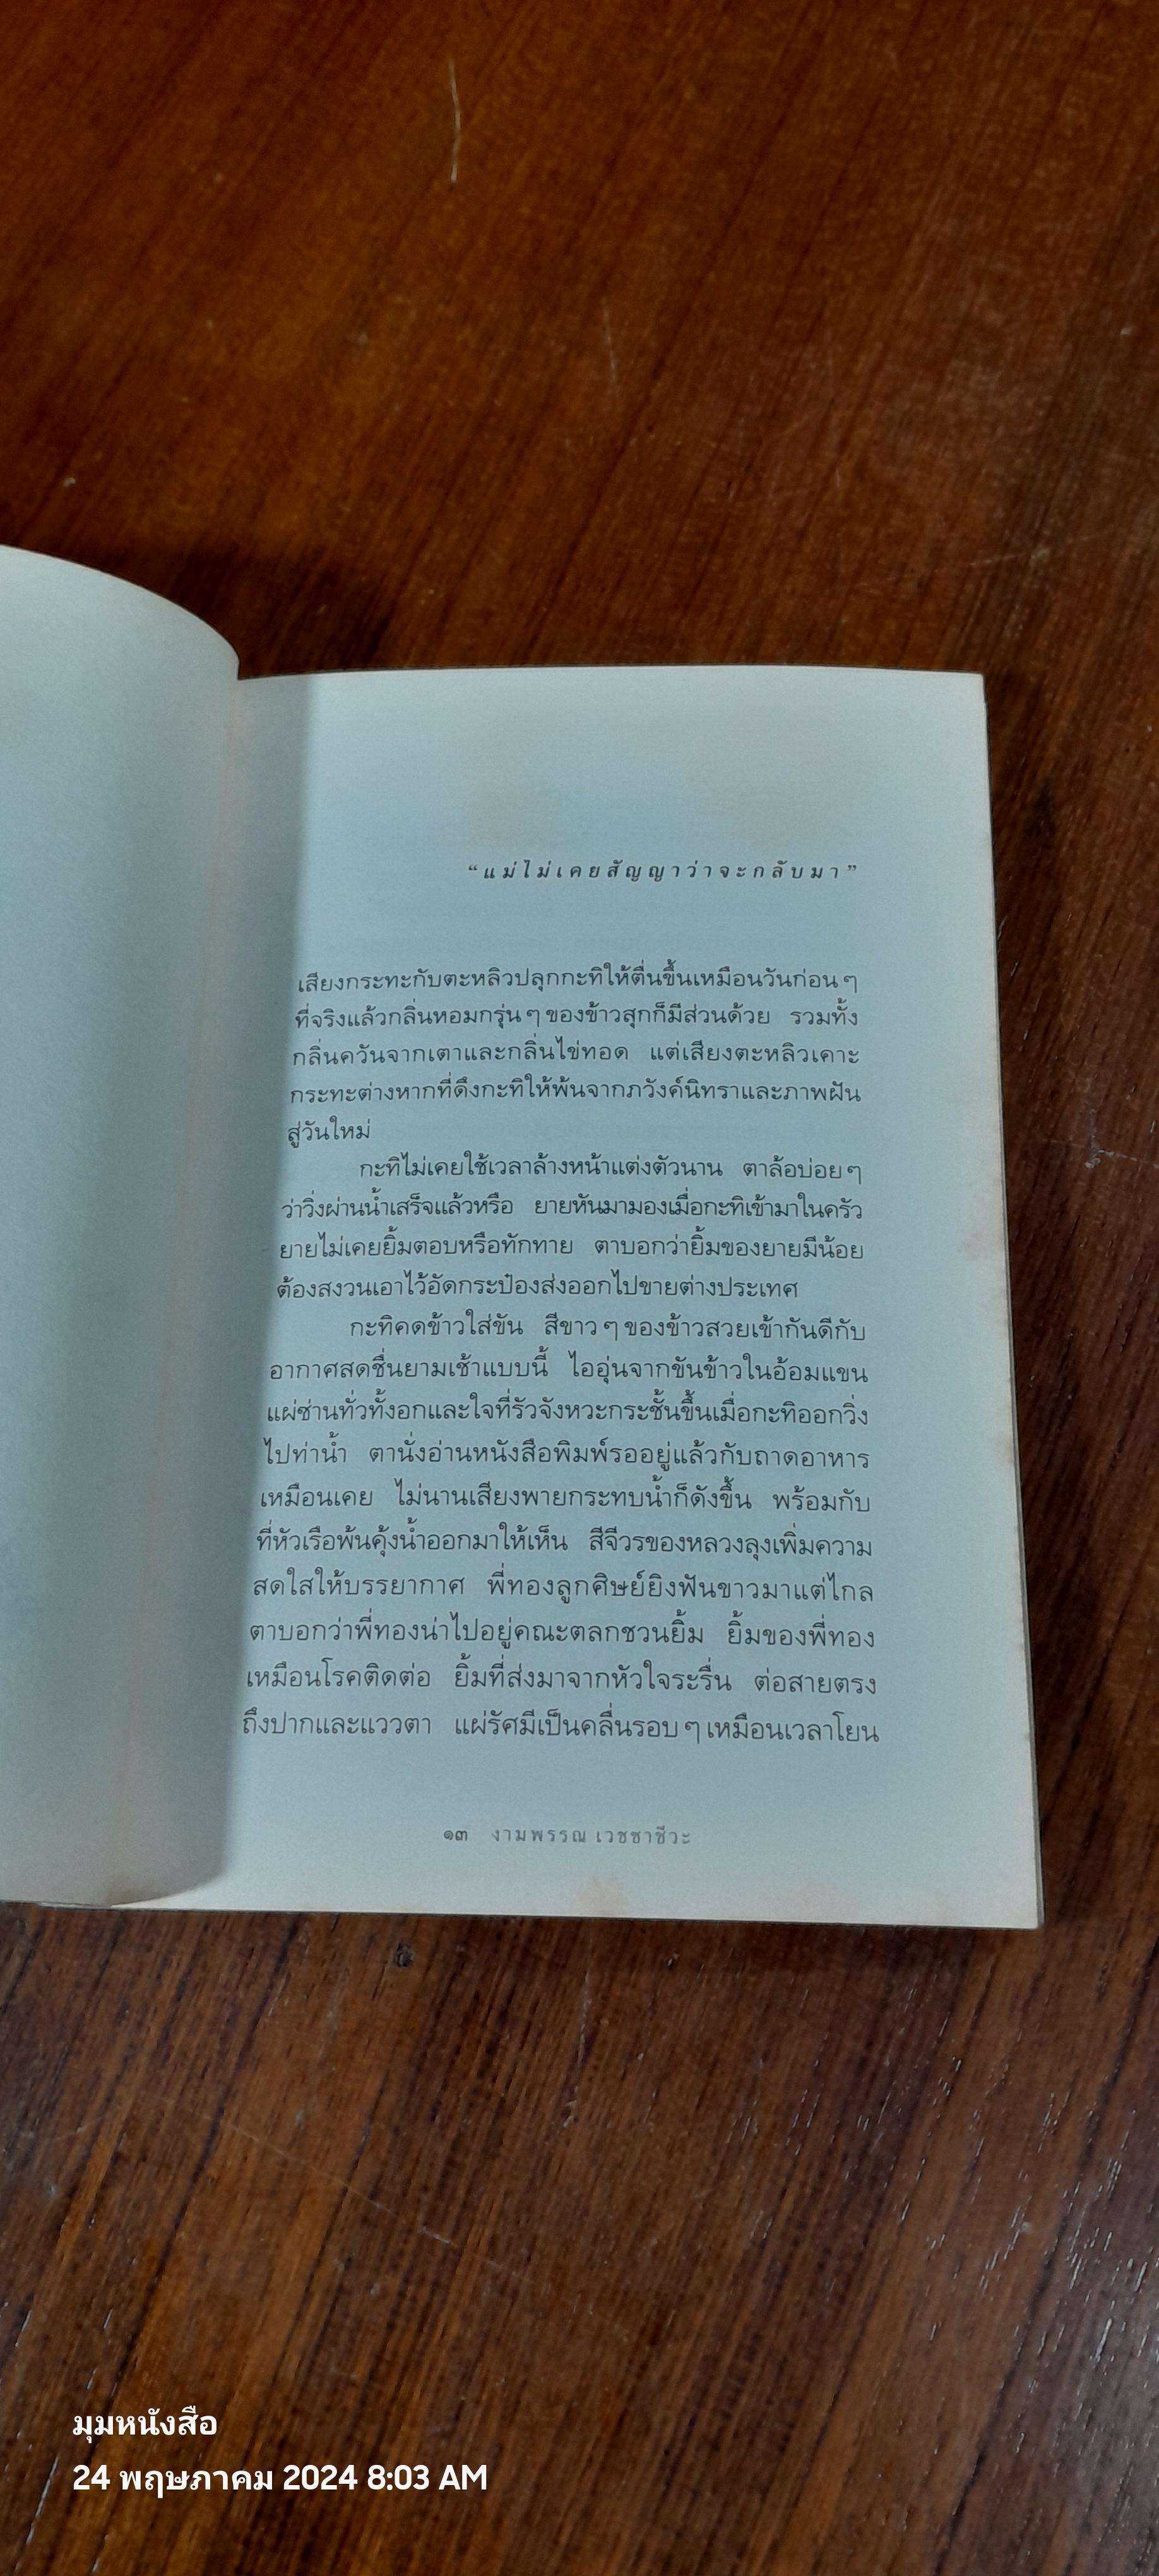 “แม่ไม่เคยสัญญาว่าจะกลับมา”
เสียงกระทะกับตะหลิวปลุกกะทิให้ตื่นขึ้นเหมือนวันก่อน ๆ
ที่จริงแล้วกลิ่นหอมกรุ่น ๆ ของข้าวสุกก็มีส่วนด้วย รวมทั้ง
กลิ่นควันจากเตาและกลิ่นไข่ทอด แต่เสียงตะหลิวเคาะ
กระทะต่างหากที่ดึงกะทิให้พ้นจากภวังค์นิทราและภาพฝัน
สู่วันใหม่
กะทิไม่เคยใช้เวลาล้างหน้าแต่งตัวนาน ตาล้อบ่อย ๆ
ว่าวิ่งผ่านน้ำเสร็จแล้วหรือ ยายหันมามองเมื่อกะทิเข้ามาในครัว
ยายไม่เคยยิ้มตอบหรือทักทาย ตาบอกว่ายิ้มของยายมีน้อย
ต้องสงวนเอาไว้อัดกระป๋องส่งออกไปขายต่างประเทศ
กะทิคดข้าวใส่ขัน สีขาว ๆ ของข้าวสวยเข้ากันดีกับ
อากาศสดชื่นยามเช้าแบบนี้ ไออุ่นจากขันข้าวในอ้อมแขน
แผ่ซ่านทั่วทั้งอกและใจที่รัวจังหวะกระชั้นขึ้นเมื่อกะทิออกวิ่ง
ไปท่าน้ำ ตานั่งอ่านหนังสือพิมพ์รออยู่แล้วกับถาดอาหาร
เหมือนเคย ไม่นานเสียงพายกระทบน้ำก็ดังขึ้น พร้อมกับ
ที่หัวเรือพ้นคุ้งน้ำออกมาให้เห็น สีจีวรของหลวงลุงเพิ่มความ
สดใสให้บรรยากาศ พี่ทองลูกศิษย์ยิงฟันขาวมาแต่ไกล
ตาบอกว่าพี่ทองน่าไปอยู่คณะตลกชวนยิ้ม ยิ้มของพี่ทอง
เหมือนโรคติดต่อ ยิ้มที่ส่งมาจากหัวใจระรื่น ต่อสายตรง
ถึงปากและแววตา แผ่รัศมีเป็นคลื่นรอบ ๆ เหมือนเวลาโยน
๑๓ งามพรรณ เวชชาชีวะ
มุมหนังสือ
24 พฤษภาคม 2024 8:03 AM